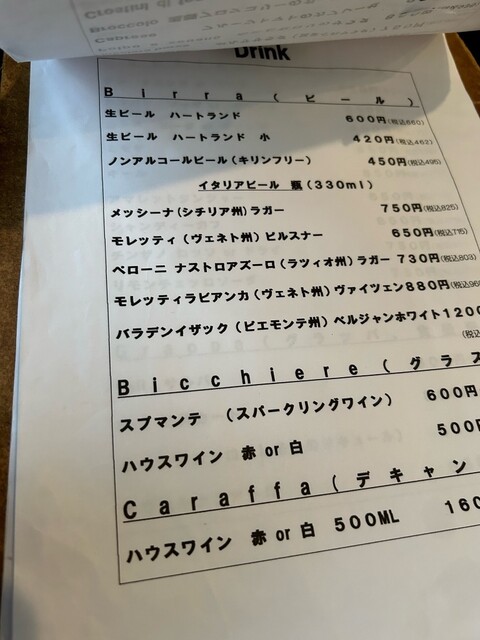 Crostini di
Broccolo
Caprese
Drink
Birra(ビール)
生ビール ハートランド 600円(税込660)
生ビール ハートランド 小 420円(税込462)
ノンアルコールビール(キリンフリー) 450円(税込495)
イタリアビール 瓶(330ml)
メッシーナ(シチリア州)ラガー 750円(税込825)
モレッティ(ヴェネト州)ピルスナー 650円(税込715)
ペローニ ナストロアズーロ(ラツィオ州)ラガー 730円(税込803)
モレッティラビアンカ(ヴェネト州)ヴァイツェン880円(税込96
バラデンイザック(ピエモンテ州)ベルジャンホワイト1200
(税込
Bicchiere(グラス
スプマンテ (スパークリングワイン) 600円
ハウスワイン 赤 or 白 500円
Caraffa(デキャン
ハウスワイン 赤 or 白 500ML 160